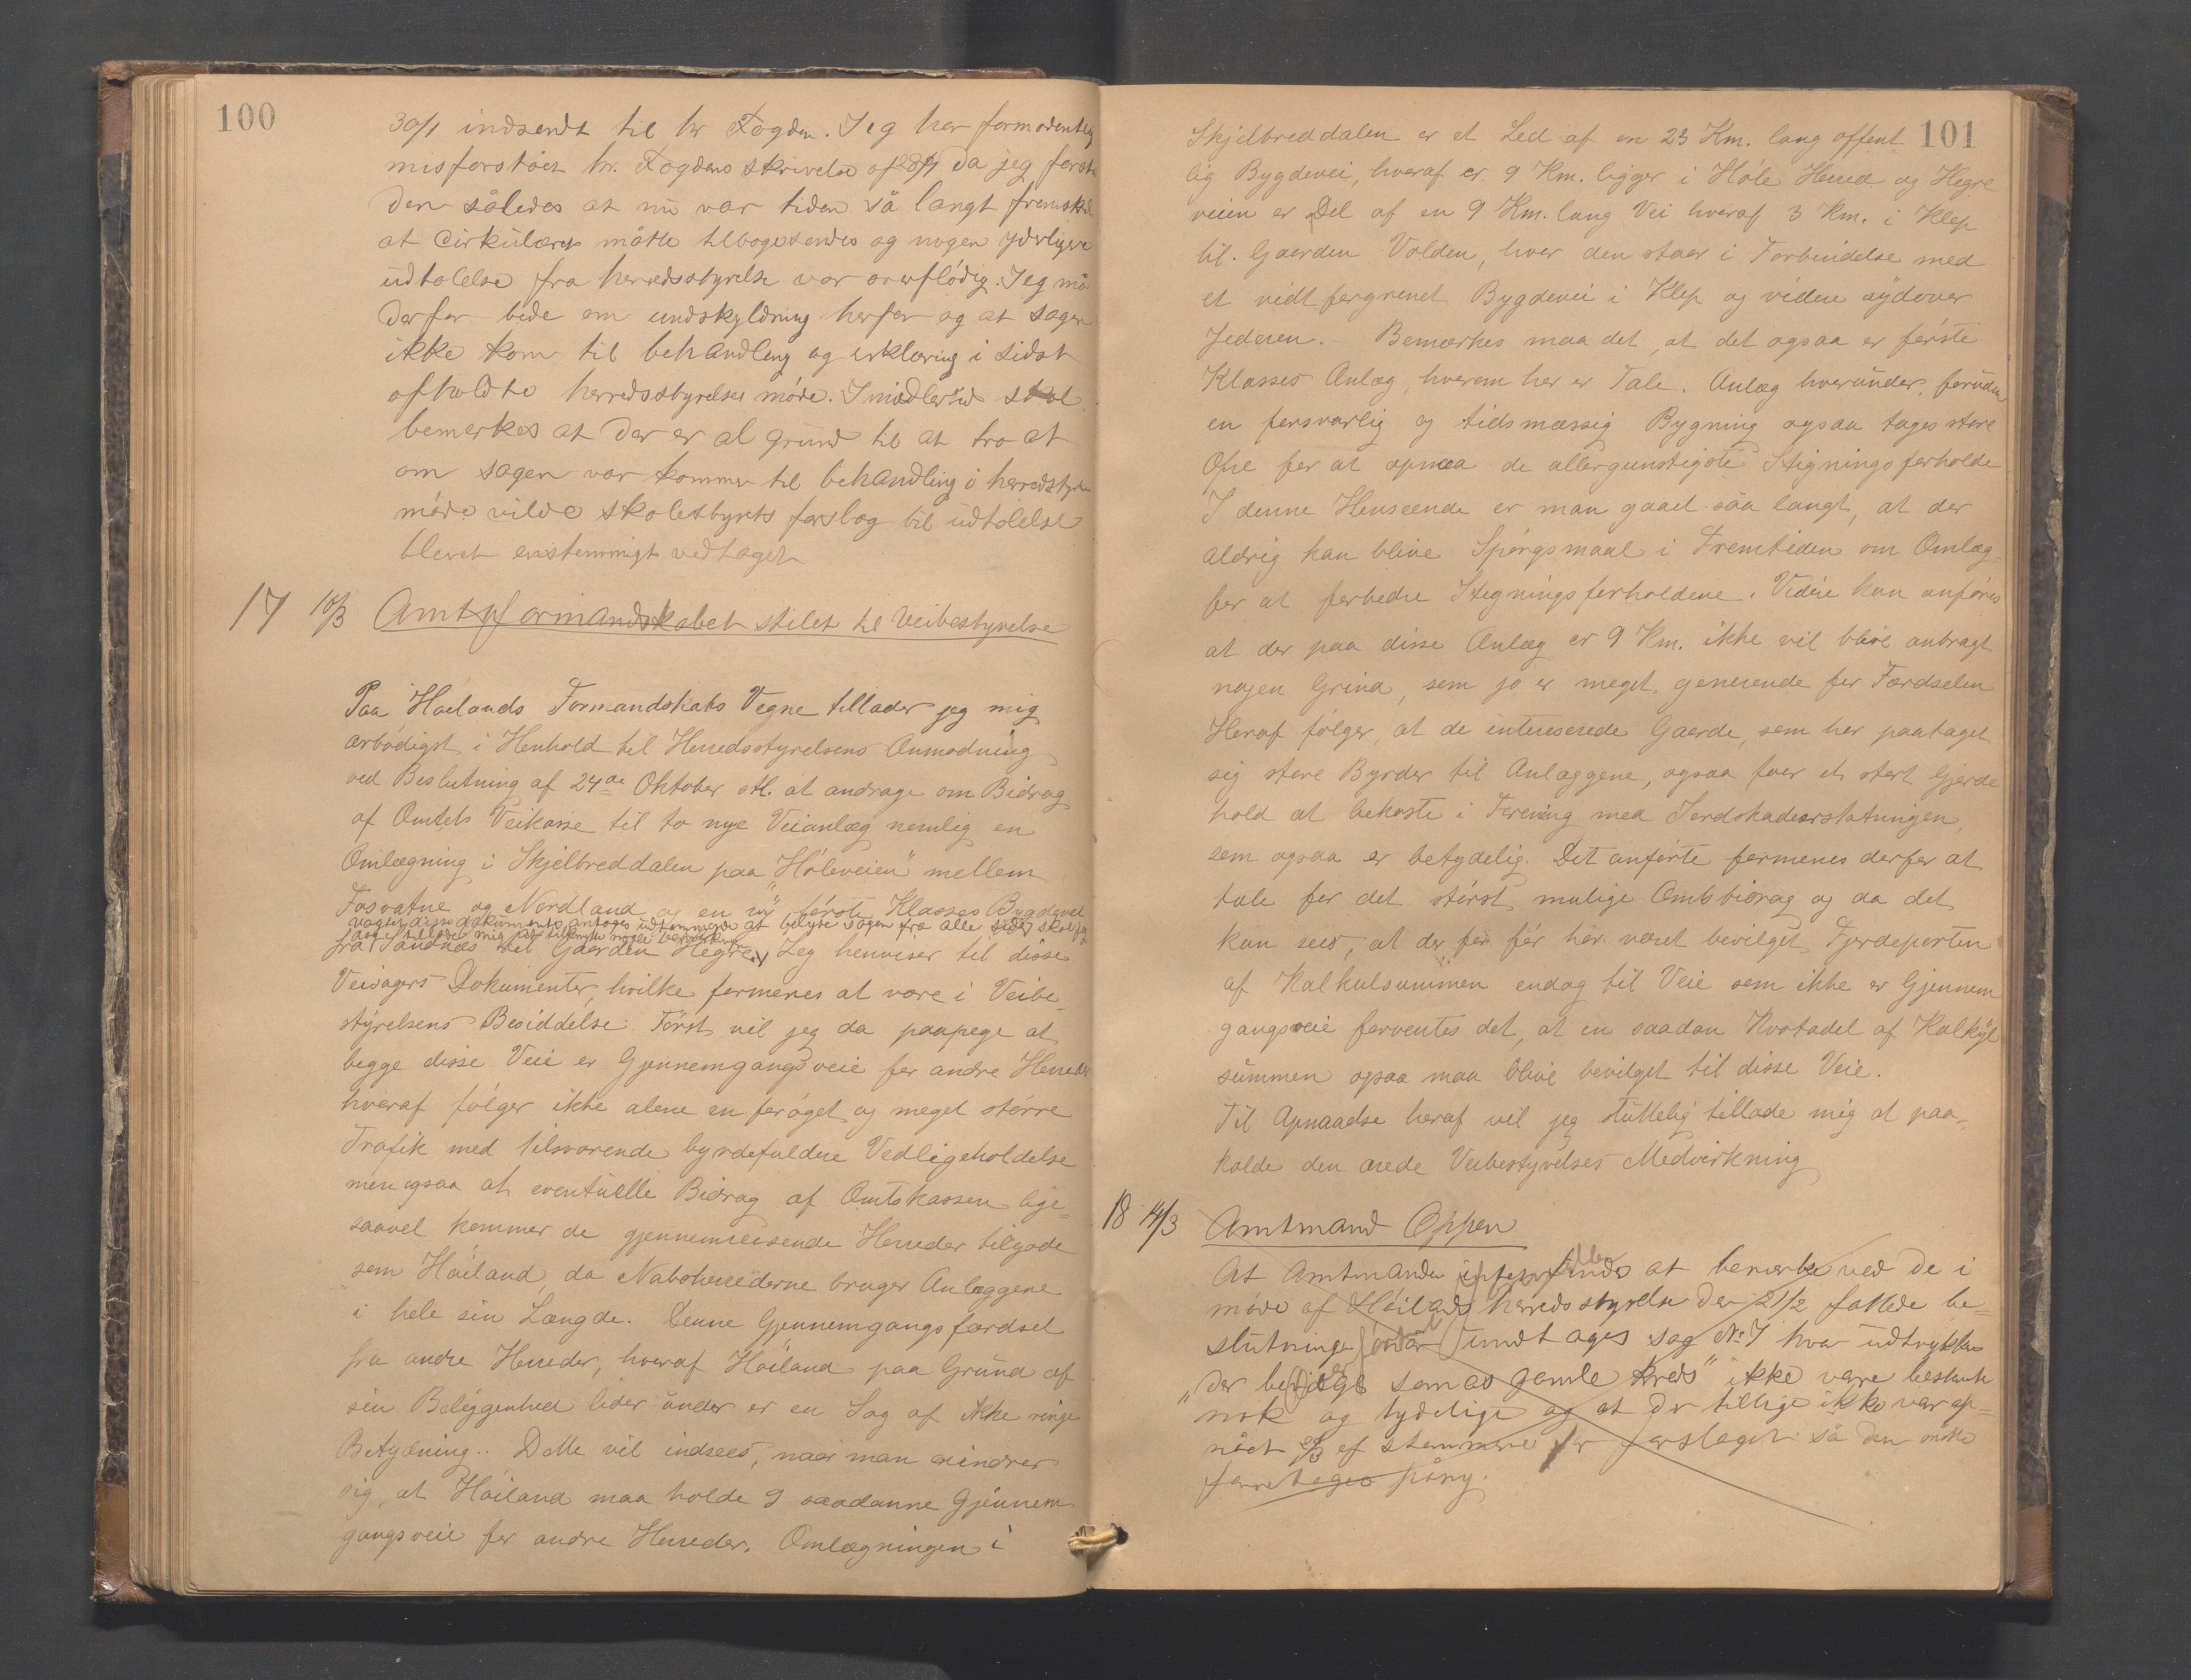 100
30/1 indsendt til hr Fogden. Jeg har formodentlig
misforstået hr. Fogdens skrivelse af 28/1 da jeg forsto
den således at nu var tiden så langt fremskred
at Cirkulæret måtte tilbagesendes og nogen yderligere
udtalelse fra herredsstyrelse var overflødig. Jeg må
derfor bede om undskyldning herfor og at sagen
ikke kom til behandling og erklæring i sidst
afholdte herredsstyrelses møde. Imidlertid skal
bemerkes at der er al grund til at tro at
om sagen var kommen til behandling i herredstyre
møde vilde skolestyrets forslag til udtalelse
blevet enstemmigt vedtaget
17 10/3 Amtsformandskabet stilet til Veibestyrelse
Paa Høilands Formandskabs Vegne tillader jeg mig
ærbødigst i Henhold til Herredsstyrelsens Anmodning
ved Beslutning af 24de Oktober stl. at andrage om Bidrag
af Amtets Veikasse til to nye Veianlæg nemlig en
Omlægning i Skjelbreddalen paa "Høleveien" mellem
Fosvatne og Nordland og en ny første Klasses Bygdevei
disse dokumenter antages udtømmende at belyse sagen fra alle sider skal jeg
tillade mig nogle
fra Sandnes til Gaarden Hegre. Jeg henviser til disse
Veisagers Dokumenter, hvilke formenes at være i Veibe-
styrelsens Besiddelse. Først vil jeg da paapege at
begge disse Veie er Gjennemgangsveie for andre Herreder
hveraf følger ikke alene en forøget og meget større
Trafik med tilsvarende byrdefuldere Vedligeholdelse
men ogsaa at eventuelle Bidrag af Amtskassen lige-
saavel kommer de gjennemreisende Herreder tilgode
som Høiland, da Naboherrederne bruger Anlæggene
i hele sin Længde. Denne Gjennemgangsfærdsel
fra andre Herreder, hveraf Høiland paa Grund af
sin Beliggenhed lider under er en Sag af ikke ringe
Betydning.. Dette vil indsees, naar man erindrer
sig, at Høiland maa holde 9 saadanne Gjennem
gangsveie for andre Herreder. Omlægningen i
101
Skjelbreddalen er et Led af en 23 Km. lang offent
lig Bygdevei, hveraf er 9 Km. ligger i Høle Herred og Hegre
veien er Del af en 9 Km. lang Vei hveraf 3 Km. i Klep
til Gaarden Volden, hvor den staar i Forbindelse med
et vidt forgrenet Bygdevei i Klep og videre sydover
Jederen. - Bemærkes maa det, at det ogsaa er første
Klasses Anlæg, hverom her er Tale. Anlæg hvorunder, foruden
en forsvarlig og tidsmæssig Bygning ogsaa tages store
Ofre for at opnaa de allergunstigste Stigningsforholde
I denne Henseende er man gaaet saa langt, at der
aldrig kan blive Spørgsmaal i Fremtiden om Omlæg-
for at forbedre Stigningsforholdene. Videre kan anføres
at der paa disse Anlæg er 9 Km. ikke vil blive anbragt
nogen Grind, som jo er meget generende for Færdselen
Heraf følger, at de interesserede Gaarde, som har paataget
sig store Byrder til Anlæggene, ogsaa faar et stort Gjerde
hold at bekoste i Forening med Jordskadeerstatningen,
som ogsaa er betydelig. Det anførte formenes derfor at
tale for det størst mulige Amtsbidrag og da det
kan sees, at der før har været bevilget Fjerdeparten
af Kalkulsummen endog til Veie som ikke er Gjennem
gangsveie forventes det, at en saadan Kvotadel af Kalkyl
summen ogsaa maa blive bevilget til disse Veie.
Til Opnaadse heraf vil jeg sluttelig tillade mig at paa-
kalde den ærede Veibestyrelses Medvirkning
18 14/3 Amtmand Oppen
At Amtmanden intet finder at bemerke ved de i
møde af Høilands herredsstyrelse den 21/2 fattede be-
slutninger undtages sag No 7 hvor udtrykket
"der som as gamle kreds" ikke være bestemte
nok og tydelige og at der tillige ikke var op-
nået 2/3 af stemmere for forslaget så den måtte
foretages påny.